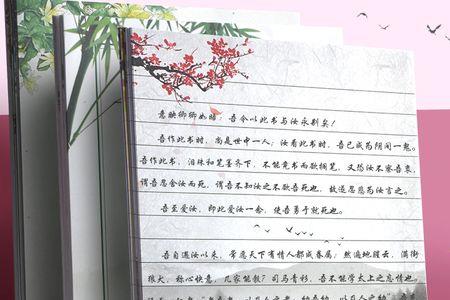 意映卿卿如晤:吾今以此书与汝永别矣!
吾作此书时,尚是世中一人;汝看此书时,吾已成为阴间一鬼。
吾作此书,泪珠和笔墨齐下,不能竟书而欲搁笔,又恐汝不察吾衷,
谓吾忍舍汝而死,谓吾不知汝之不欲吾死也,故遂忍悲为汝言之。
吾至爱汝,即此爱汝一念,使吾勇于就死也。
吾自遇汝以来,常愿天下有情人都成眷属;然遍地腥云,满街
狼犬,称心快意,几家能彀?司马青衫,吾不能学太上之忘情也。